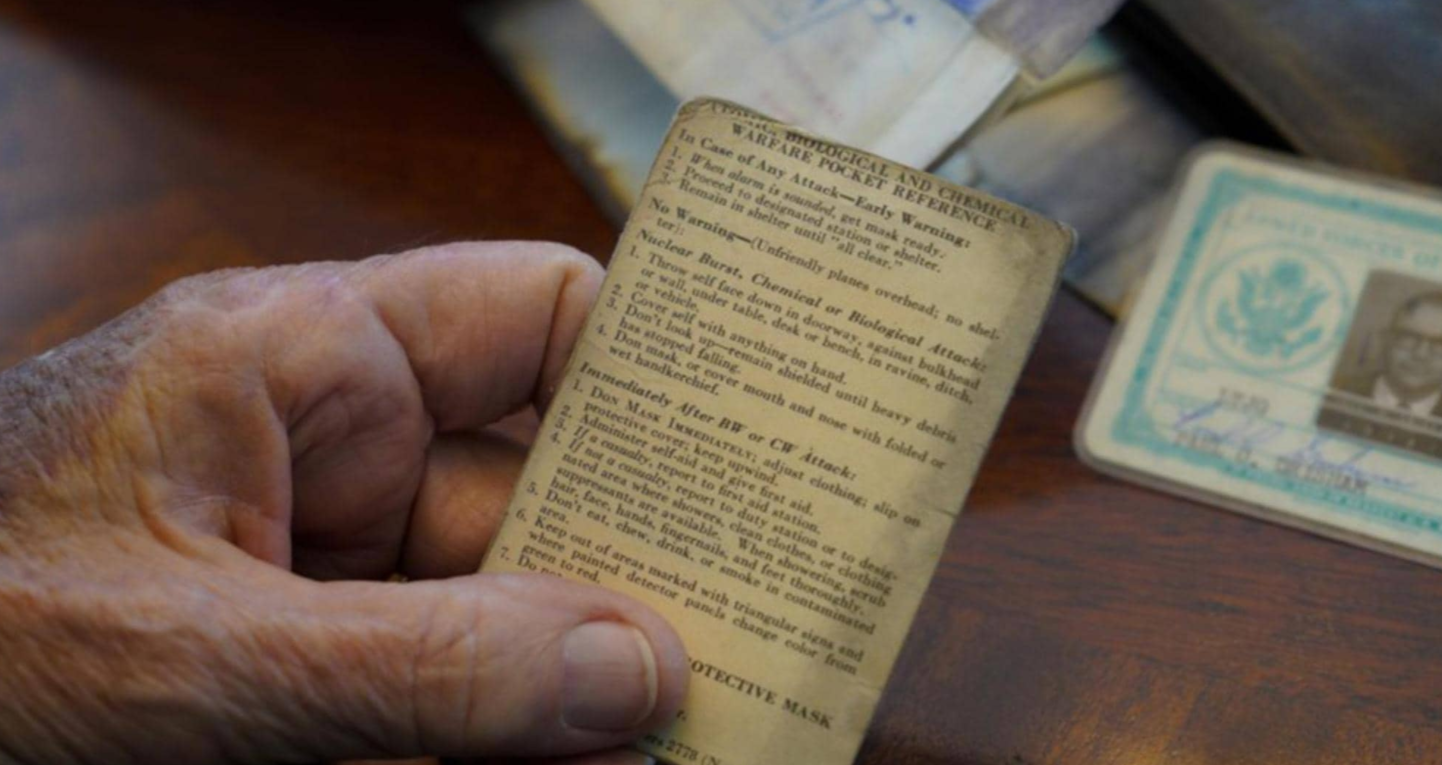 ATOMIC, BIOLOGICAL AND CHEMICAL
WARFARE POCKET REFERENCE
In Case of Any Attack—Early Warning:
1. When alarm is sounded, get mask ready.
2. Proceed to designated station or shelter.
Remain in shelter until "all clear."
No Warning—(Unfriendly planes overhead; no shel-
ter):
Nuclear Burst, Chemical or Biological Attack:
1. Throw self face down in doorway, against bulkhead
or wall, under table, desk or bench, in ravine, ditch,
or vehicle.
2. Cover self with anything on hand.
3. Don't look up—remain shielded until heavy debris
has stopped falling.
4. Don mask, or cover mouth and nose with folded or
wet handkerchief.
Immediately After BW or CW Attack:
1. DON MASK IMMEDIATELY; adjust clothing; slip on
protective cover; keep upwind.
2. Administer self-aid and give first aid.
3. If a casualty, report to first aid station.
4. If not a casualty, report to duty station or to desig-
nated area where showers, clean clothes, or clothing
suppressants are available. When showering, scrub
hair, face, hands, fingernails, and feet thoroughly.
5. Don't eat, chew, drink, or smoke in contaminated
area.
6. Keep out of areas marked with triangular signs and
where painted detector panels change color from
green to red.
7. Do
OTECTIVE MASK
2778 (N
UNITED STATES OF